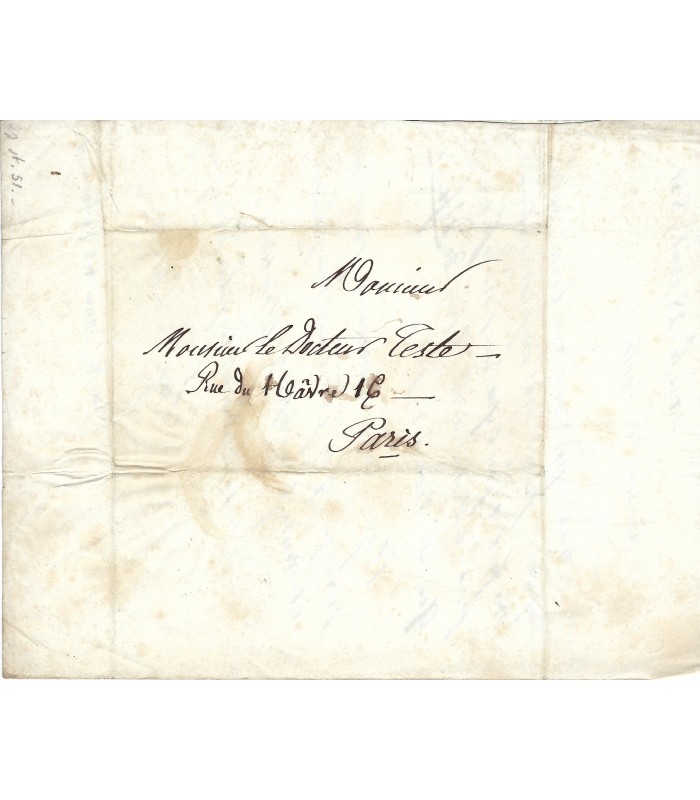 Monsieur
Monsieur le Docteur Teste
Rue du Hâvre 16
Paris.